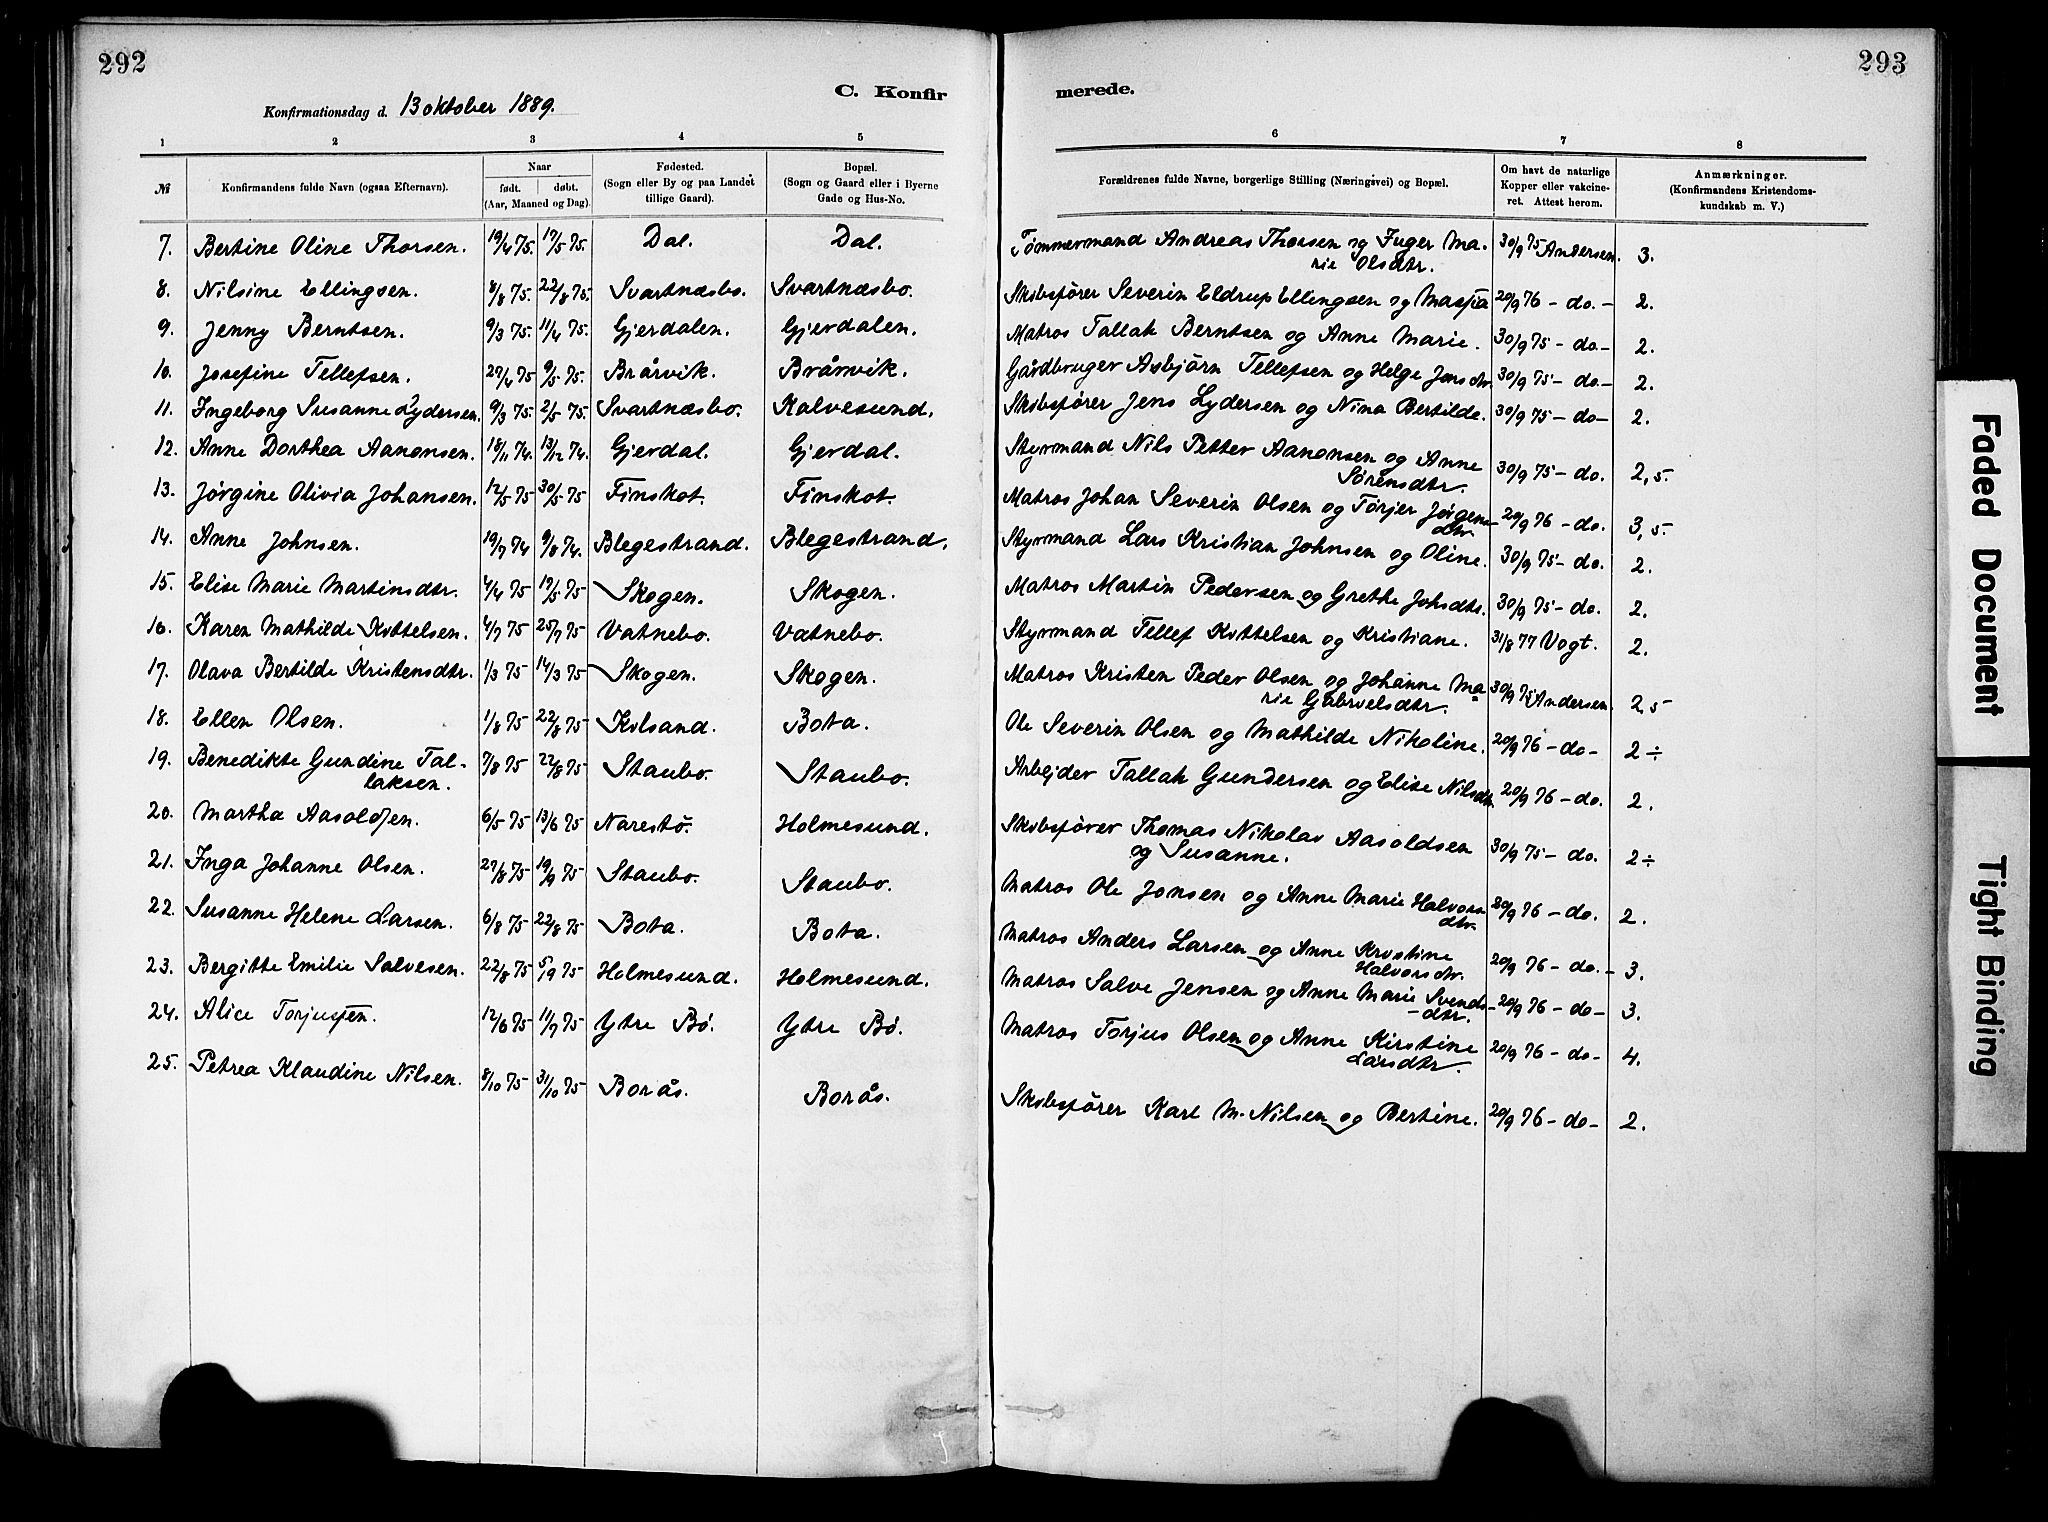 292
293
C. Konfir
merede.
Konfirmationsdag d. 13 oktober 1889.
1 2 3 4 5 6 7 8
№ Konfirmandens fulde Navn (ogsaa Efternavn). Naar født. døbt. (Aar, Maaned og Dag). Fødested. (Sogn eller By og paa Landet tillige Gaard). Bopæl. (Sogn og Gaard eller i Byerne Gade og Hus-No. Forældrenes fulde Navne, borgerlige Stilling (Næringsvei) og Bopæl. Om havt de naturlige Kopper eller vakcineret. Attest herom. Anmærkninger. (Konfirmandens Kristendomskundskab m. V.)
7. Bertine Oline Thorsen. 19/4 75. 17/5 75. Dal. Dal. Tømmermand Andreas Thorsen og Inger Ma-
rie Olsdtr. 30/9 75 Andersen. 3.
8. Nilsine Ellingsen. 8/8 75. 22/8 75. Svartnæsbo. Svartnæsbo. Skibsfører Severin Eldrup Ellingsen og Maspa 20/9 76 - do. - 2.
9. Jenny Berntsen. 9/3 75. 11/4 75. Gjerdalen. Gjerdalen. Matros Tallak Berntsen og Anne Marie. 30/9 75 - do - 2.
10. Josefine Tellefsen. 27/4 75 9/5 75. Brårvik. Brårvik. Gårdbruger Asbjörn Tellefsen og Helge Jensdtr. 30/9 75 - do - 2.
11. Ingeborg Susanne Lydersen. 9/3 75. 2/5 75. Svartnæsbo. Kalvesund. Skibsfører Jens Lydersen og Nina Bertilde. 30/9 75 - do - 2.
12. Anne Dorthea Aanonsen. 18/11 74. 13/12 74. Gjerdal. Gjerdal. Styrmand Nils Petter Aanonsen og Anne
Sørensdtr. 30/9 75 - do. 2,5.
13. Jørgine Olivia Johansen. 12/5 75 30/5 75 Finskot. Finskot. Matros Johan Severin Olsen og Torjer Jørgens-
dtr. 20/9 76 - do. 3,5.
14. Anne Johnsen. 19/7 74 9/8 74. Blegestrand. Blegestrand. Styrmand Lars Kristian Johnsen og Oline. 30/9 75 - do. 2.
15. Elise Marie Martinsdtr. 4/4 75 17/5 75 Skogen. Skogen. Matros Martin Pedersen og Grethe Johsdtr. 30/9 75 - do. 2.
16. Karen Mathilde Kittelsen. 4/7 75 25/7 75 Vatnebo. Vatnebo. Styrmand Tellef Kittelsen og Kristiane. 31/8 77 Vogt. 2.
17. Olava Bertilde Kristensdtr. 1/3 75 14/3 75 Skogen. Skogen. Matros Kristen Peder Olsen og Johanne Ma
rie Gabrielsdtr. 30/9 75 Andersen. 2,5
18. Ellen Olsen. 1/8 75 22/8 75 Kilsand. Bota. Ole Severin Olsen og Mathilde Nikoline. 20/9 76 - do - 2 ÷
19. Benedikte Gundine Tal-
laksen. 7/8 75 22/8 75 Staubo. Staubo. Arbejder Tallak Gundersen og Elise Nilsdtr. 20/9 76 - do. 2.
20. Martha Aasoldsen. 6/5 75 13/6 75 Narestö. Holmesund. Skibsfører Thomas Nikolai Aasoldsen
og Susanne. 30/9 75 - do. 2 ÷
21. Inga Johanne Olsen. 27/8 75 19/9 75 Staubo. Staubo. Matros Ole Jonsen og Anne Marie Halvors
dtr. 20/9 76 - do. 2.
22. Susanne Helene Larsen. 6/8 75 22/8 75 Bota. Bota. Matros Anders Larsen og Anne Kristine
Halvorsdtr. 20/9 76 - do. - 3.
23. Bergitte Emilie Salvesen. 22/8 75 5/9 75 Holmesund. Holmesund. Matros Salve Jensen og Anne Marie Svends-
-dtr. 20/9 76 - do - 3.
24. Alice Torjussen. 12/6 75 11/7 75 Ytre Bö. Ytre Bö. Matros Torjus Olsen og Anne Kirstine
Larsdtr. 20/9 76 - do - 4.
25. Petrea Klaudine Nilsen. 8/10 75 31/10 75 Borås. Borås. Skibsfører Karl M. Nilsen og Bertine. 20/9 76 - do - 2.
Faded Document
Tight Binding